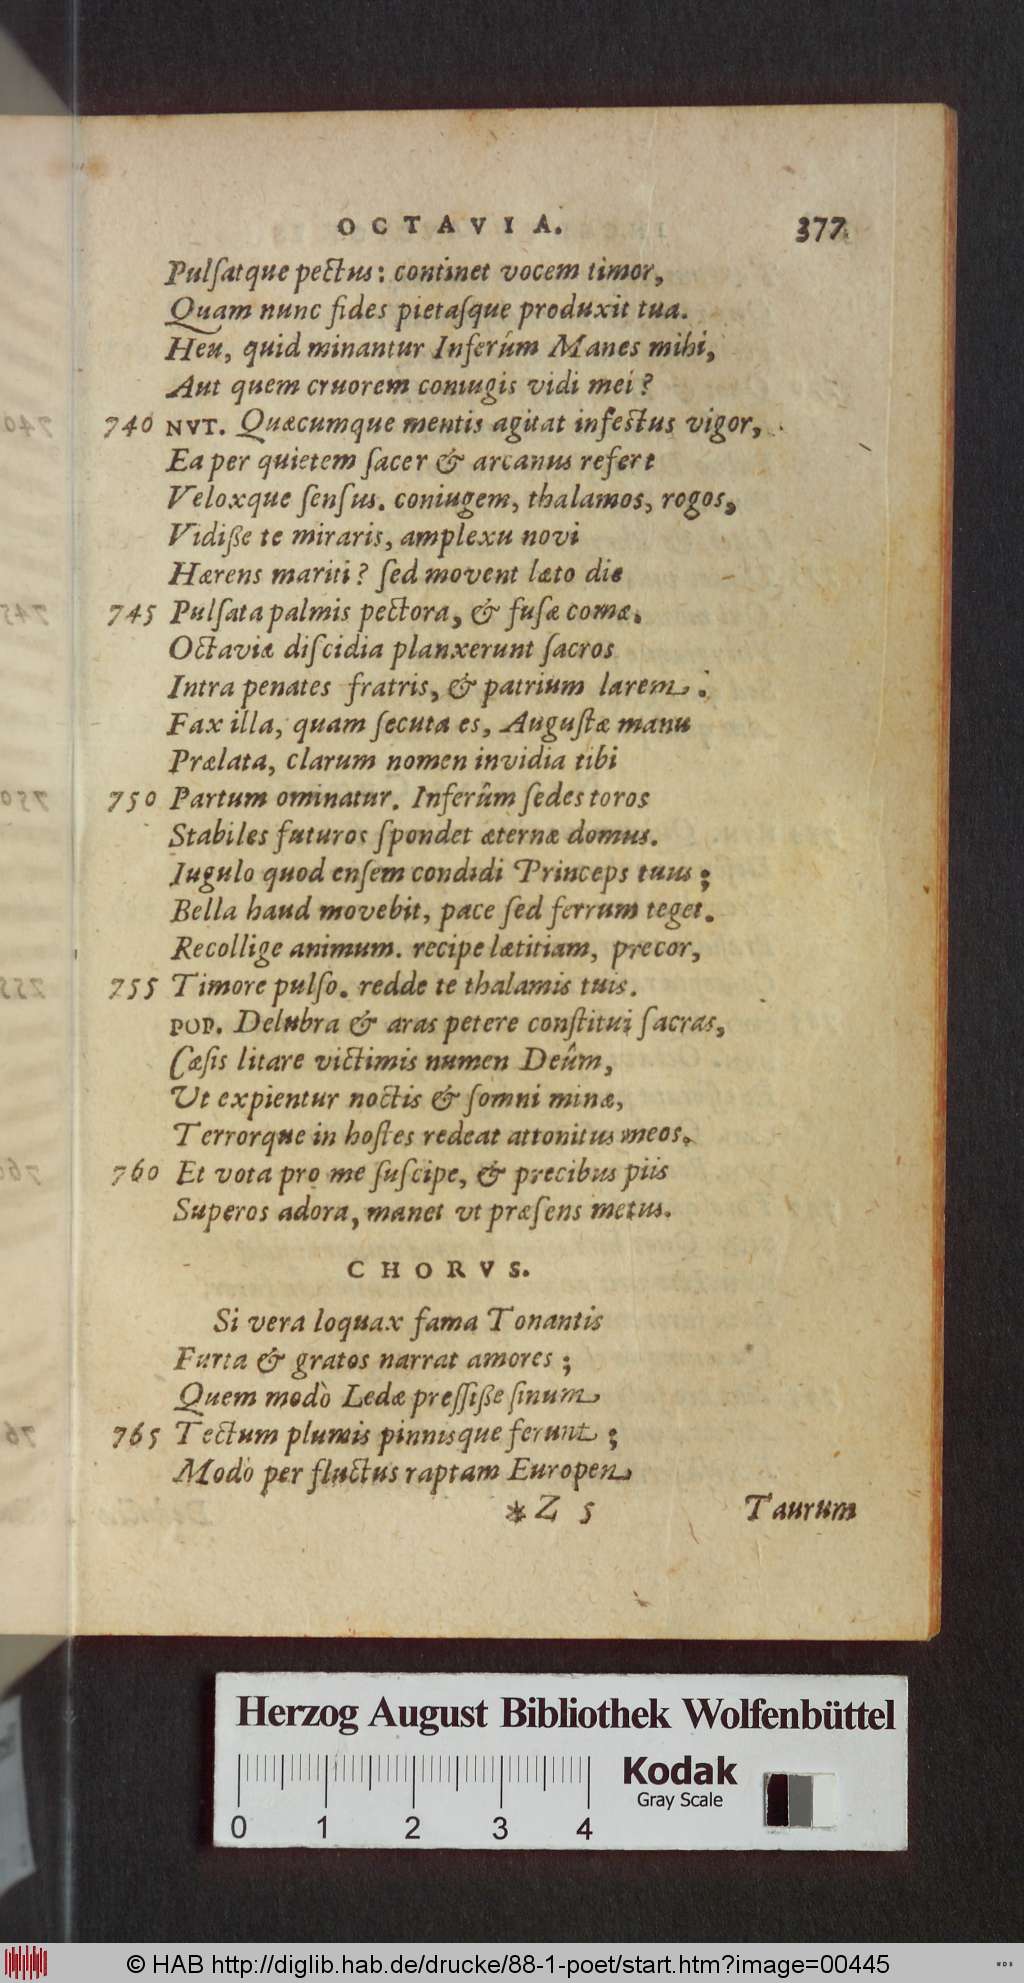 OCTAVIA. 377
Pulſatque pectus: continet vocem timor,
Quam nunc fides pietaſque produxit tua.
Heu, quid minantur Inferûm Manes mihi,
Aut quem cruorem coniugis vidi mei?
740 NVT. Quæcumque mentis agitat infestus vigor,
Ea per quietem ſacer & arcanus refert
Veloxque ſenſus. coniugem, thalamos, rogos,
Vidiße te miraris, amplexu novi
Hærens mariti? ſed movent læto die
745 Pulſata palmis pectora, & fuſæ comæ.
Octaviæ diſcidia planxerunt ſacros
Intra penates fratris, & patrium larem.
Fax illa, quam ſecuta es, Auguſtæ manu
Prælata, clarum nomen invidia tibi
750 Partum ominatur. Inferûm ſedes toros
Stabiles futuros ſpondet æternæ domus.
Jugulo quod enſem condidi Princeps tuus;
Bella haud movebit, pace ſed ferrum teget.
Recollige animum. recipe lætitiam, precor,
755 Timore pulſo. redde te thalamis tuis.
POP. Delubra & aras petere conſtitui ſacras,
Cæſis litare victimis numen Deûm,
Ut expientur noctis & ſomni minæ,
Terrorque in hoſtes redeat attonitus meos.
760 Et vota pro me ſuſcipe, & precibus piis
Superos adora, manet vt præſens metus.
CHORVS.
Si vera loquax fama Tonantis
Furta & gratos narrat amores;
Quem modò Ledæ preſſiße ſinum
765 Tectum plumis pinnisque ferunt;
Modò per fluctus raptam Europen
*Z 5 Taurum
740
745
750
755
760
76
Herzog August Bibliothek Wolfenbüttel
Kodak
Gray Scale
0 1 2 3 4
© HAB http://diglib.hab.de/drucke/88-1-poet/start.htm?image=00445